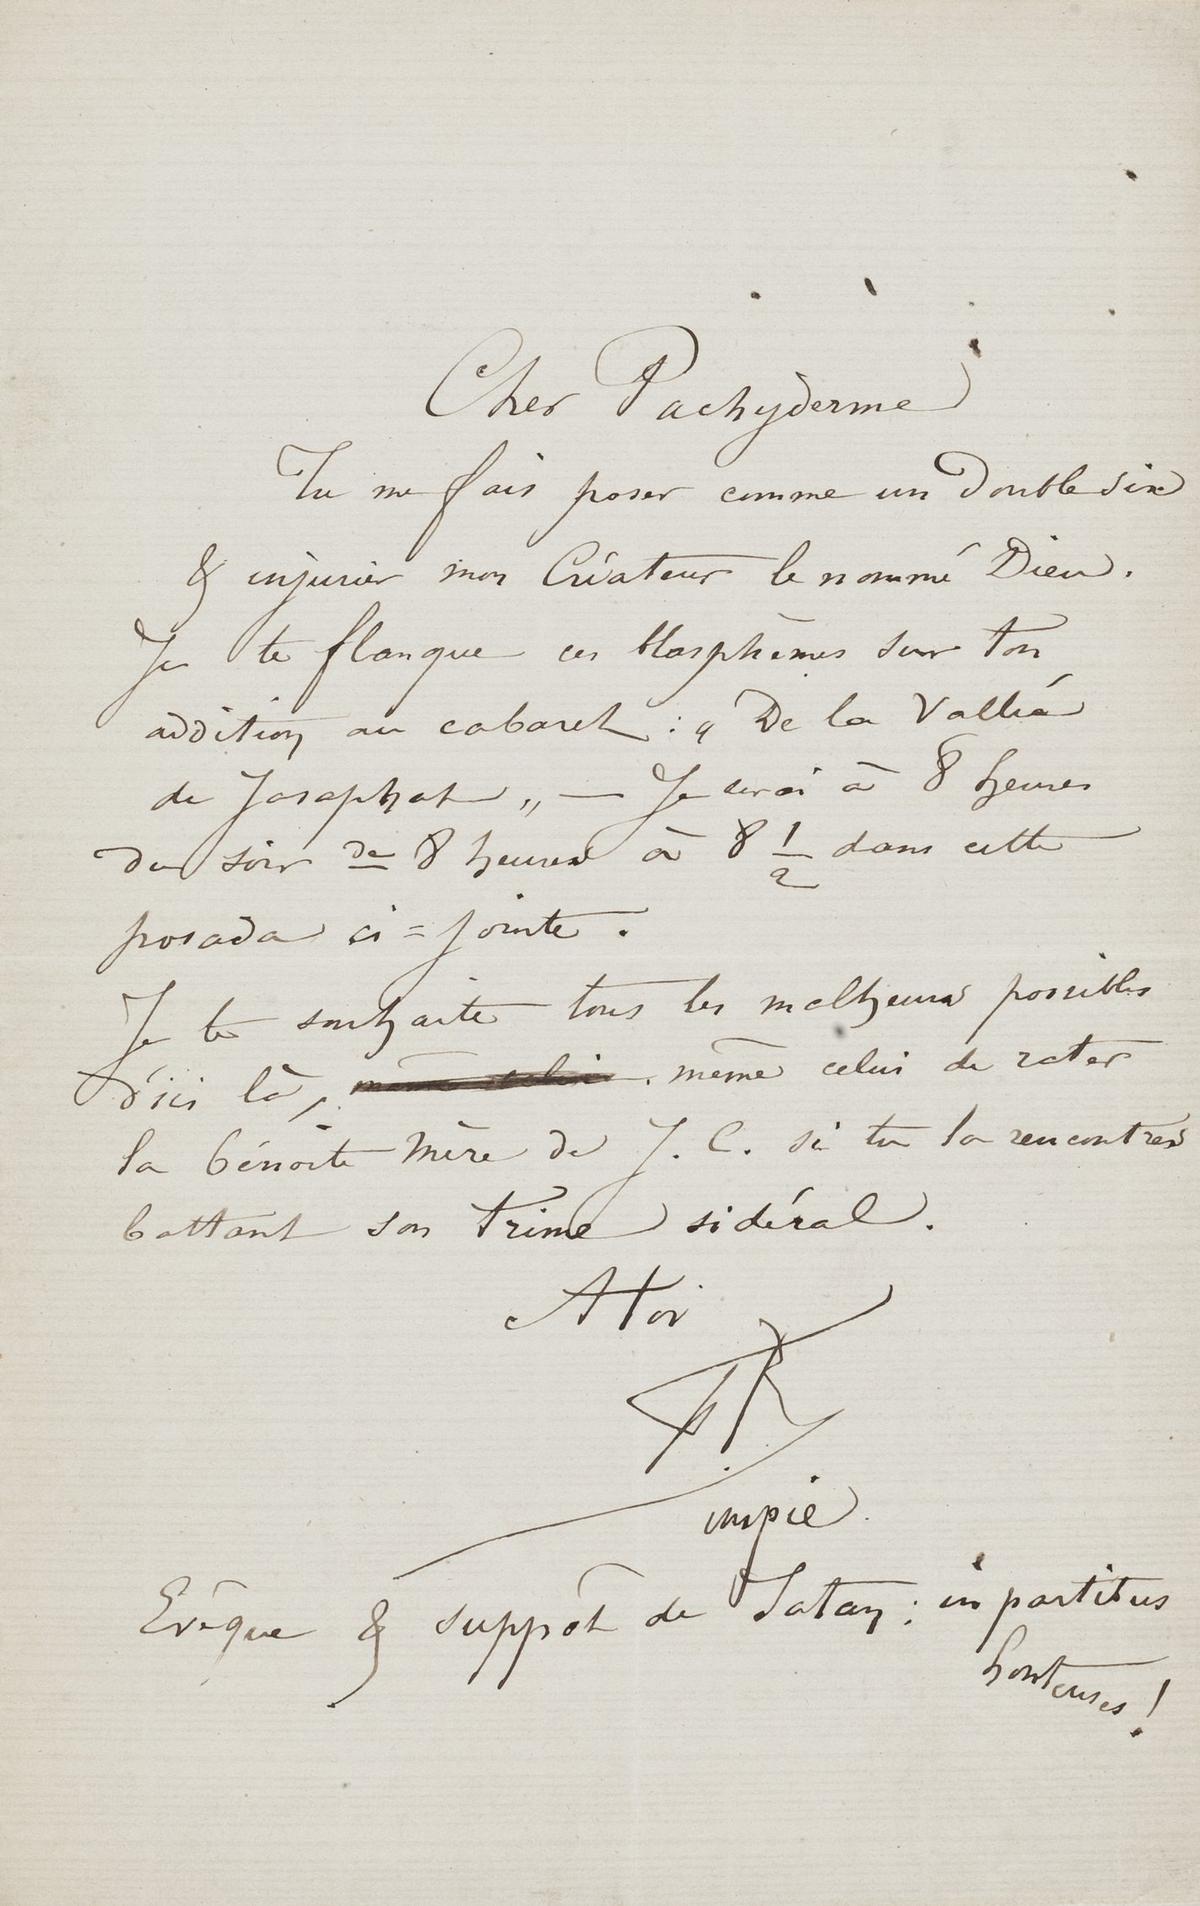 Cher Pachyderme
Tu me fais poser comme un Double six
& injurier mon Créateur le nommé Dieu.
Je te flanque ces blasphèmes sur ton
addition au cabaret : „ De la Vallée
de Josaphat „ — Je serai à 8 heures
du soir de 8 heures à 8 1/2 dans cette
posada ci = jointe .
Je te souhaite tous les malheurs possibles
d'ici là, même celui . même celui de rater
la bénoite Mère de J. C. si tu la rencontres
battant son trime sidéral.
A toi
FR
impie
Evêque & suppôt de Satan ; in partibus
honteuses !